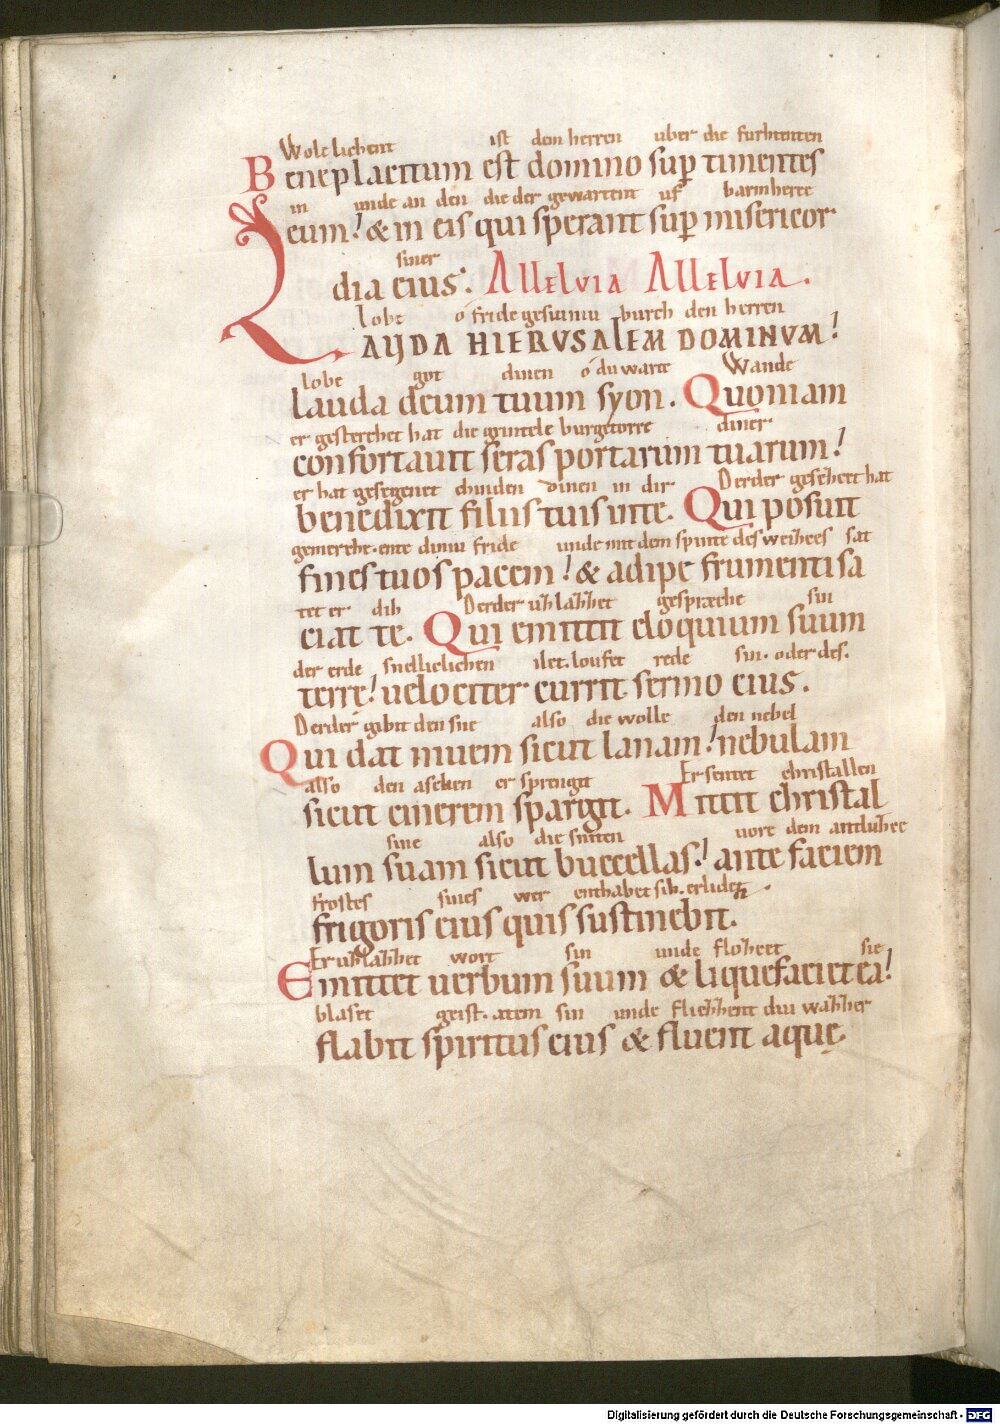 Wole lichent ist dem herren uber die furhtenten
Beneplacitum est domino sup timentes
in unde an den die der gewartent uf barmherce
eum! & in eis qui sperant sup misericor
siner
dia eius. Allelvia Allelvia.
lobe o fride gesiuniu burch den herren
LAUDA HIERUSALEM DOMINUM!
lobe got dinen o du warte Wande
lauda deum tuum syon. Quoniam
er gesterchet hat die grintele burgetorre diner
confortauit seras portarum tuarum!
er hat gesegenet chinden dinen in dir Derder gesetzet hat
benedixit filiis tuis in te. Qui posuit
gemerche. ente diniu fride unde mit dem spinte des weihees sat
fines tuos pacem! & adipe frumenti sa
tet er dih Derder uzlazzet gespræche sin
ciat te. Qui emittit eloquium suum
der erde snellielichen ilet. loufet rede sin. oder des.
terrę! uelociter currit sermo eius.
Derder gibit den sne also die wolle den nebel
Qui dat niuem sicut lanam! nebulam
also den aschen er sprengit Er sentet christallen
sicut cinerem spargit. Mittit christal
sine also die sniten vore dem antluzce
lum suam sicut buccellas! ante faciem
frostes sines wer enthabet sih. erlidez.
frigoris eius quis sustinebit.
Er uzlazzet wort sin unde flozeet sie
Emittet uerbum suum & liquefaciet ea!
blaset geist. atem sin unde fliezzent diu wazzer
flabit spiritus eius & fluent aquę.
Digitalisierung gefördert durch die Deutsche Forschungsgemeinschaft - DFG